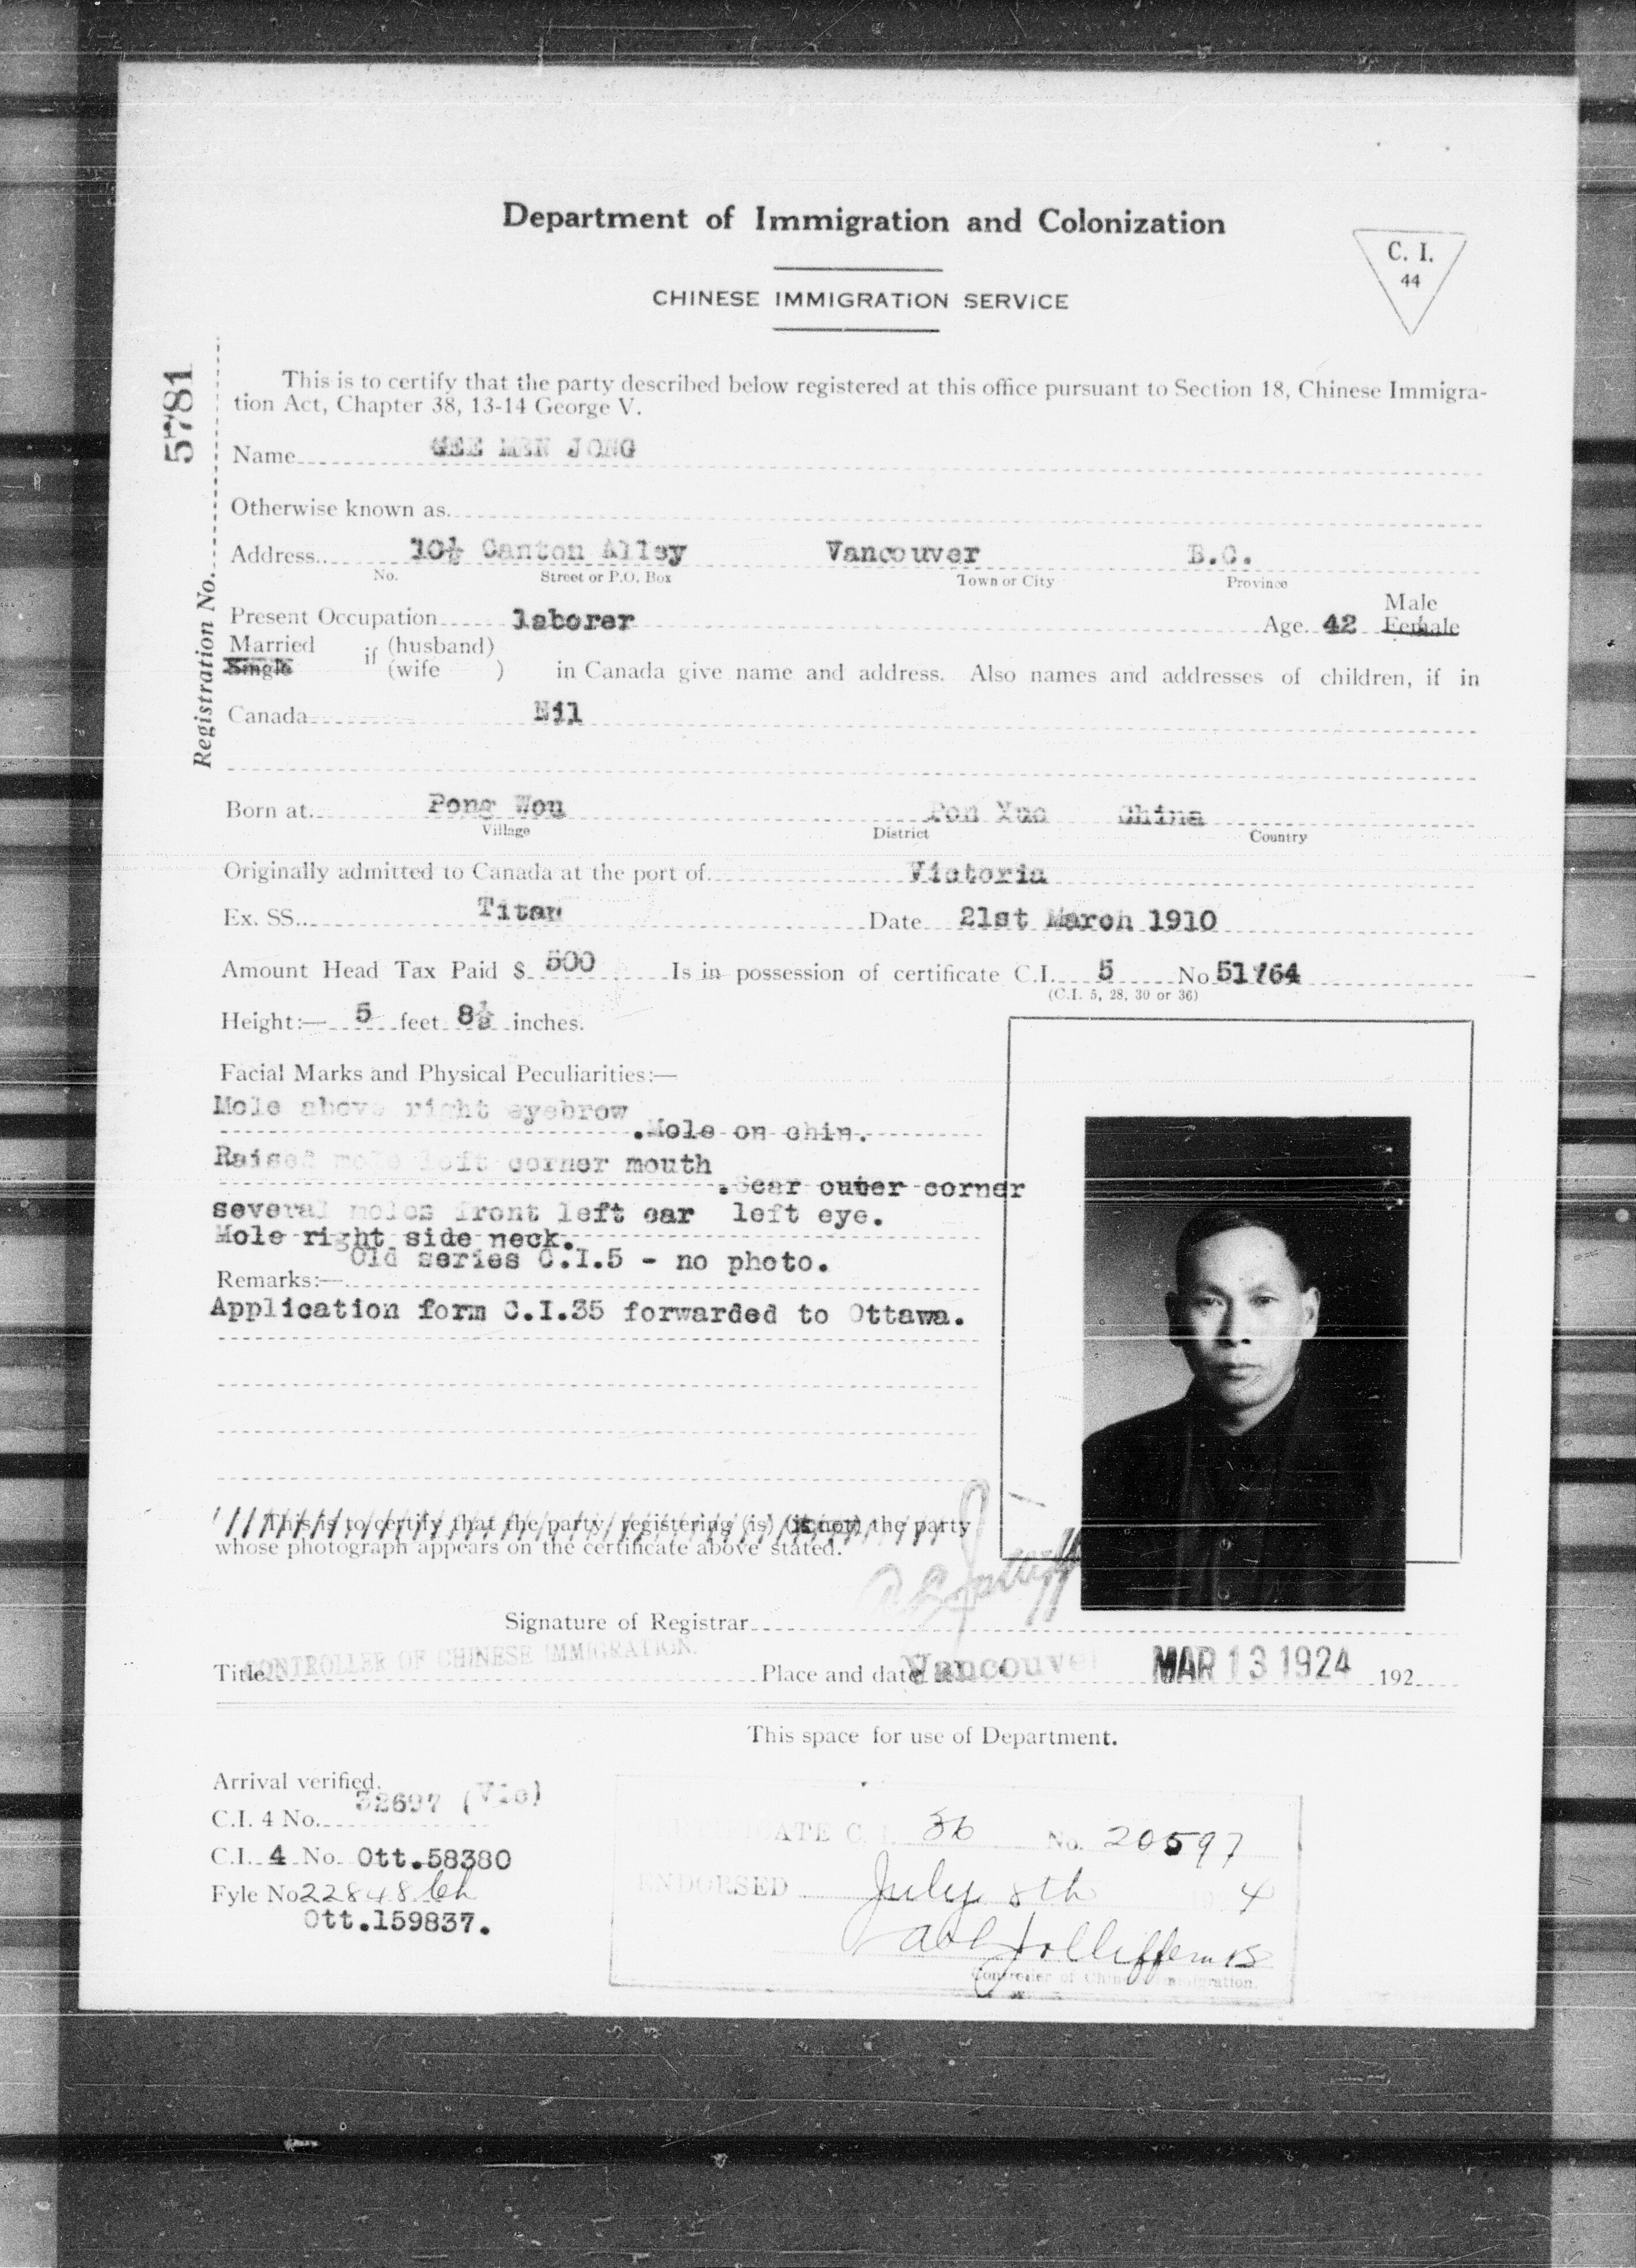 Department of Immigration and Colonization
C. I.
44
CHINESE IMMIGRATION SERVICE
5781
Registration No.
This is to certify that the party described below registered at this office pursuant to Section 18, Chinese Immigra-
tion Act, Chapter 38, 13-14 George V.
Name GEE MEN JONG
Otherwise known as
Address 10½ Canton Alley Vancouver B.C.
No. Street or P.O. Box Town or City Province
Present Occupation laborer Age 42 Male Female
Married Single if (husband) (wife ) in Canada give name and address. Also names and addresses of children, if in
Canada Nil
Born at Pong Wou Pon Yuo China
Village District Country
Originally admitted to Canada at the port of Victoria
Ex. SS. Titan Date 21st March 1910
Amount Head Tax Paid $ 500 Is in possession of certificate C.I. 5 No 51764
(C.I. 5, 28, 30 or 36)
Height:— 5 feet 8½ inches.
Facial Marks and Physical Peculiarities:—
Mole above right eyebrow
.Mole on chin.
Raised mole left corner mouth
.Scar outer corner
several moles front left ear left eye.
Mole right side neck.
Old series C.I.5 - no photo.
Remarks:—
Application form C.I.35 forwarded to Ottawa.
This is to certify that the party registering (is) (is not) the party
whose photograph appears on the certificate above stated.
Signature of Registrar
Title CONTROLLER OF CHINESE IMMIGRATION. Place and date Vancouver MAR 13 1924 192
This space for use of Department.
Arrival verified.
C.I. 4 No. 32697 (Vic)
C.I. 4 No. Ott.58380
Fyle No 22848 Ch
Ott.159837.
CERTIFICATE C.I. 36 No. 20597
ENDORSED July 8th 1924
Controller of Chinese Immigration.